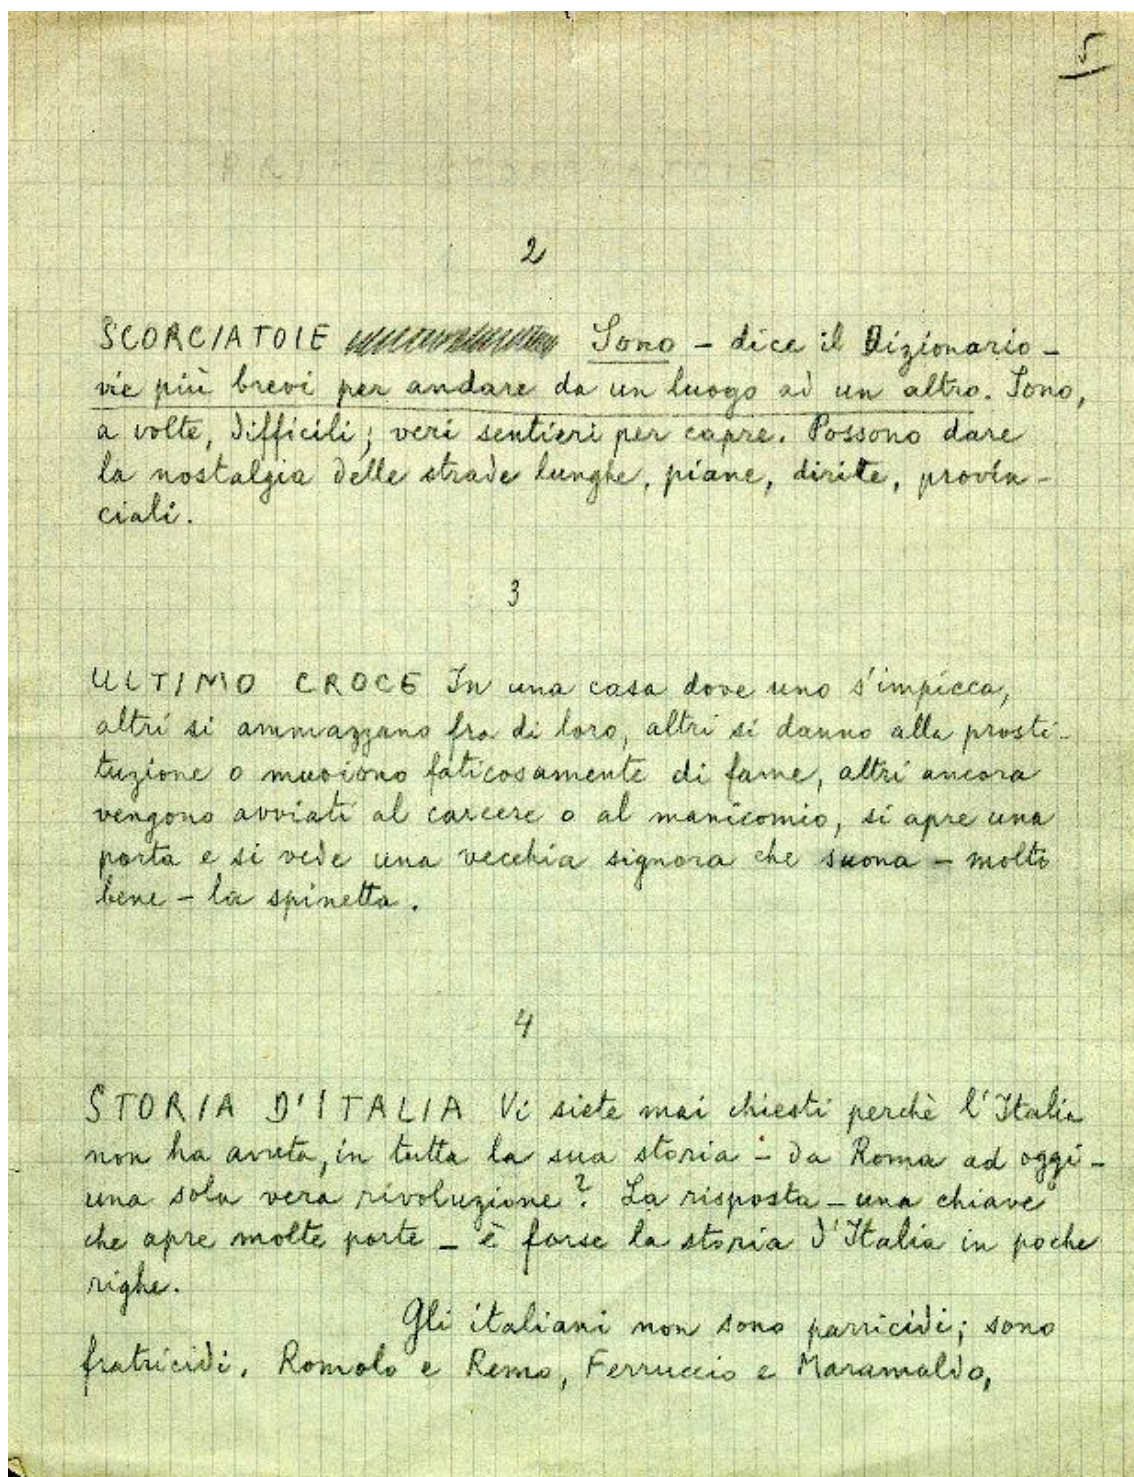 5
2
SCORCIATOIE Sono – dice il Dizionario –
vie più brevi per andare da un luogo ad un altro. Sono,
a volte, difficili; veri sentieri per capre. Possono dare
la nostalgia delle strade lunghe, piane, diritte, provin-
ciali.
3
ULTIMO CROCE In una casa dove uno s'impicca,
altri si ammazzano fra di loro, altri si danno alla prosti-
tuzione o muoiono faticosamente di fame, altri ancora
vengono avviati al carcere o al manicomio, si apre una
porta e si vede una vecchia signora che suona – molto
bene – la spinetta.
4
STORIA D'ITALIA Vi siete mai chiesti perchè l'Italia
non ha avuta, in tutta la sua storia – da Roma ad oggi –
una sola vera rivoluzione? La risposta – una chiave
che apre molte porte – è forse la storia d'Italia in poche
righe.
Gli italiani non sono parricidi; sono
fratricidi. Romolo e Remo, Ferruccio e Maramaldo,